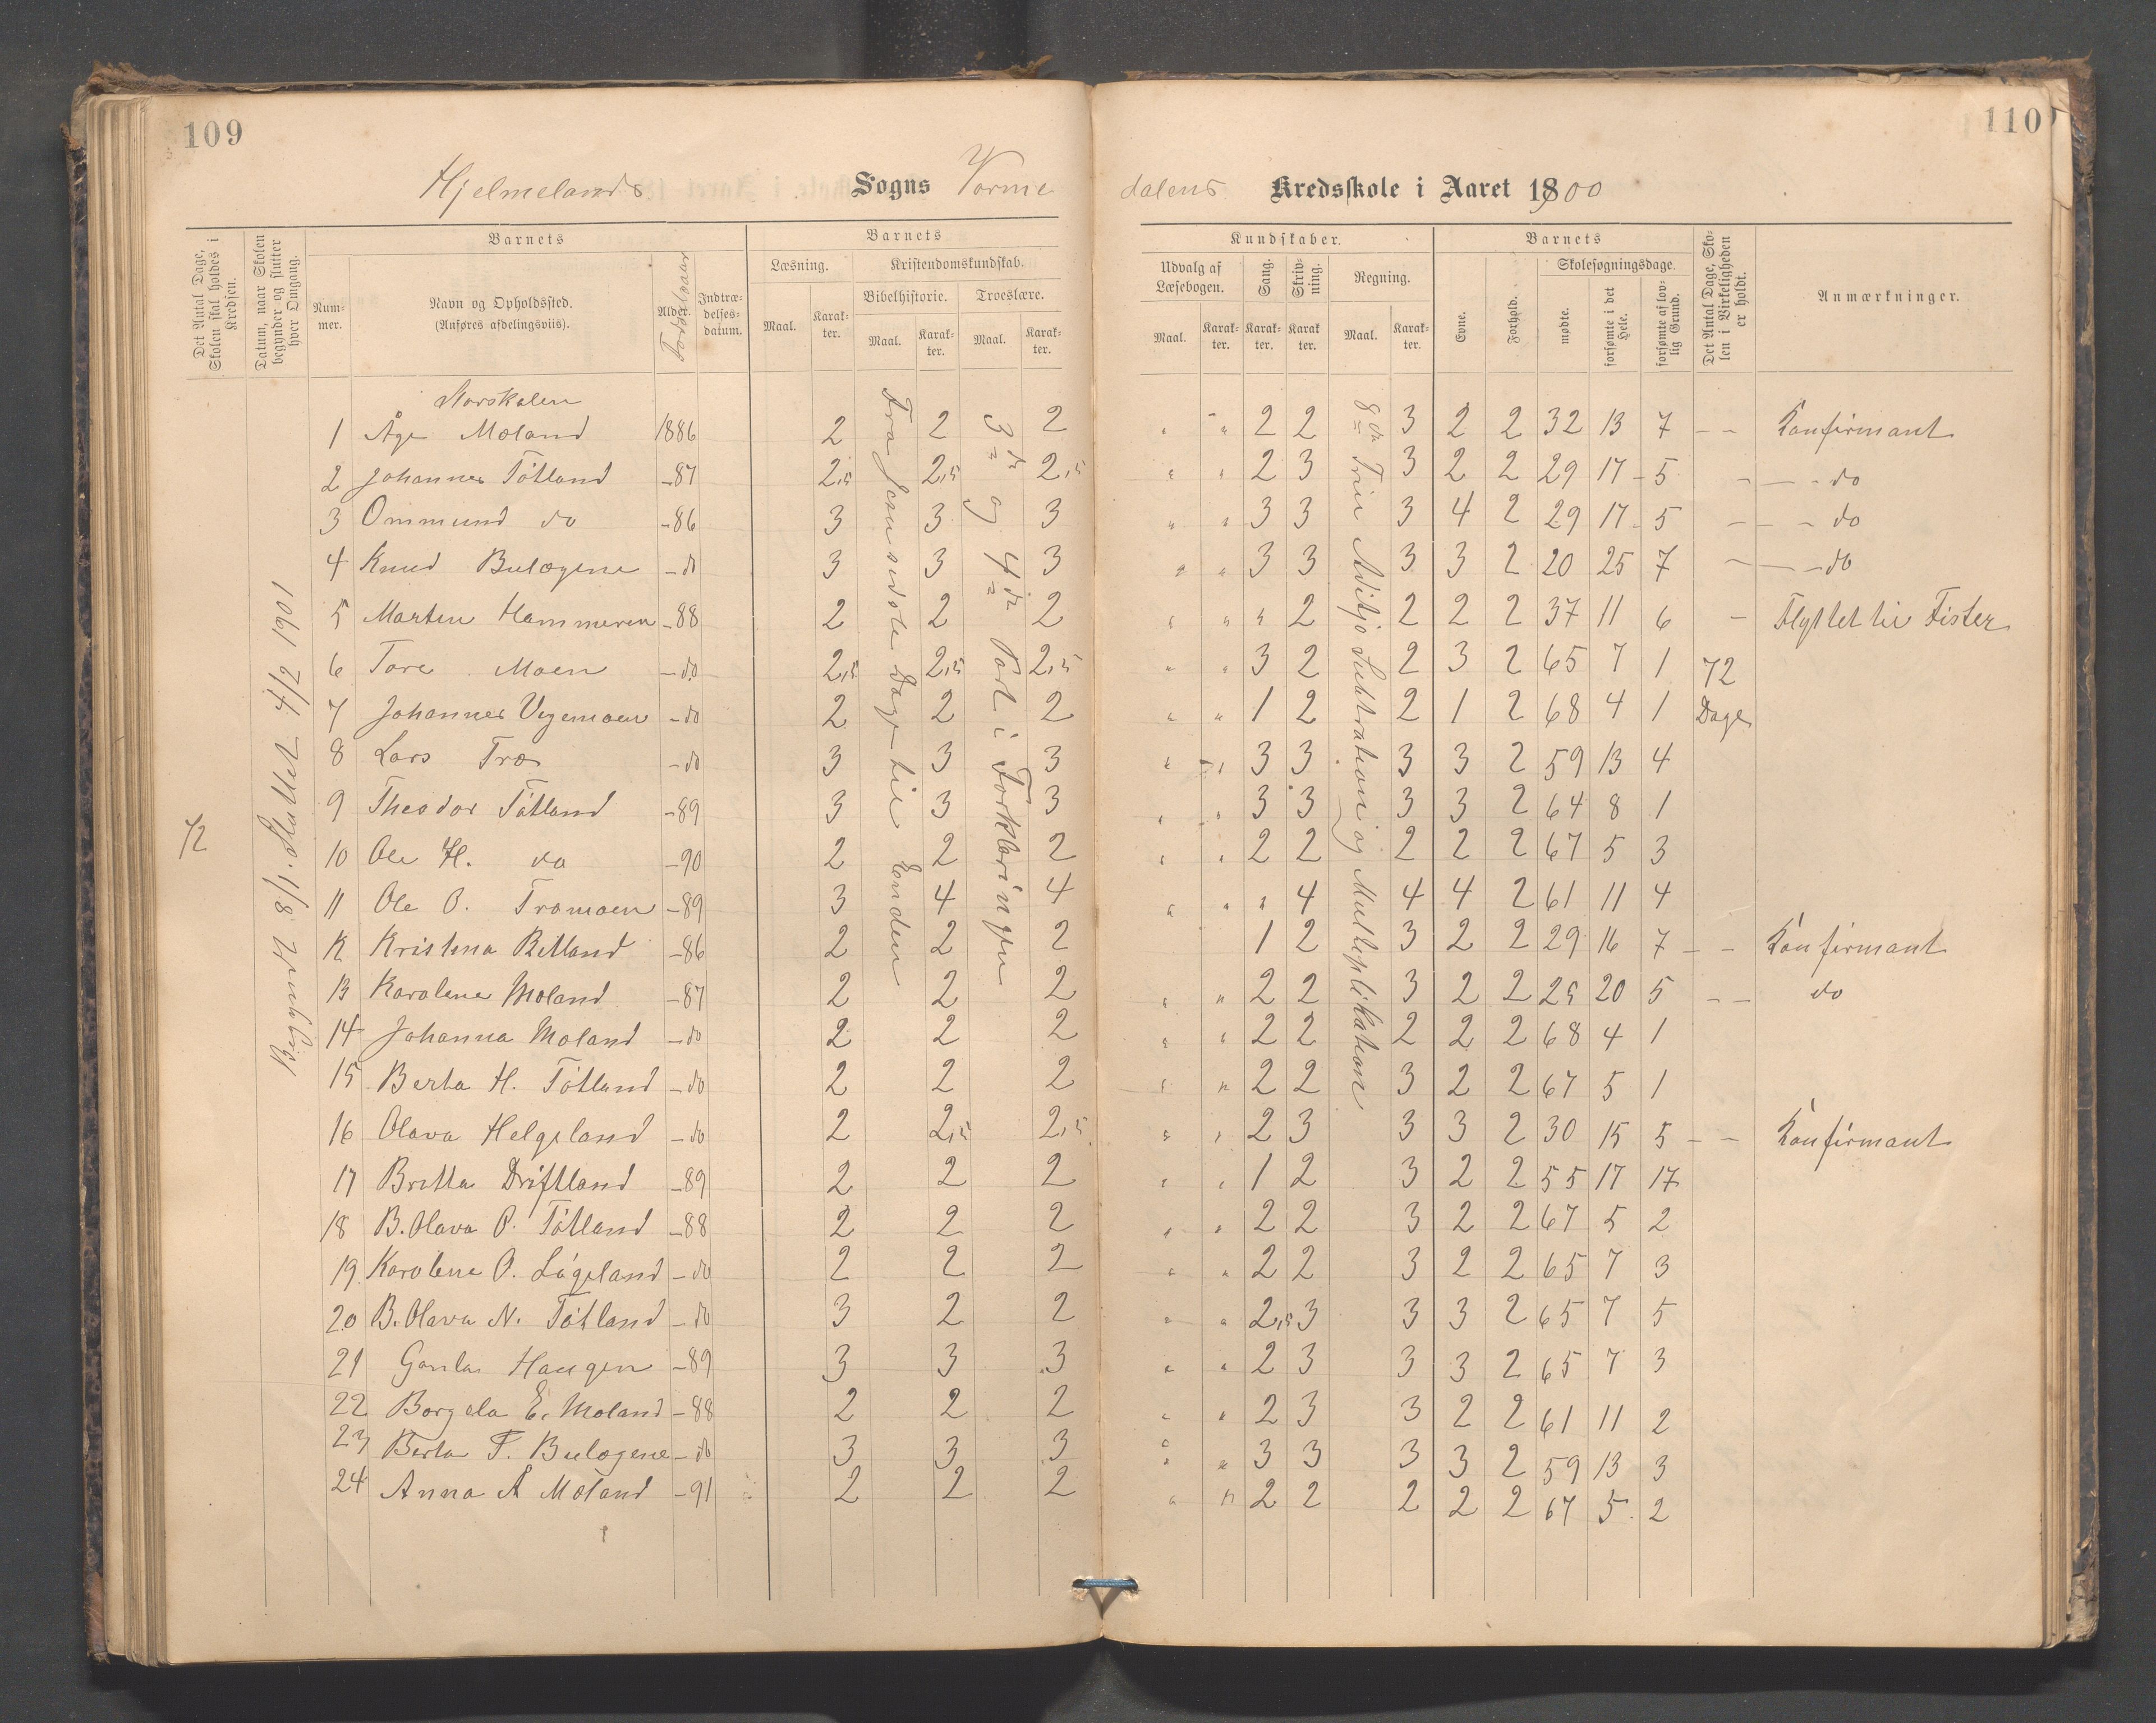 109
110
Hjelmelands Sogns Vorme
dalens Kredsskole i Aaret 1900
Det Antal Dage, Skolen skal holdes i Kredsen.
Datum, naar Skolen begynder og slutter hver Omgang.
Barnets
Nummer.
Navn og Opholdssted.
(Anføres afdelingsviis).
Alder.
Fødselsaar
Indtrædelsesdatum.
Barnets
Læsning.
Maal.
Karakter.
Kristendomskundskab.
Bibelhistorie.
Maal.
Karakter.
Troeslære.
Maal.
Karakter.
Kundskaber.
Udvalg af Læsebogen.
Maal.
Karakter.
Sang.
Karakter.
Skrivning.
Karakter.
Regning.
Maal.
Karakter.
Barnets
Evne.
Forhold.
Skolesøgningsdage.
mødte.
forsømte i det Hele.
forsømte af lovlig Grund.
Det Antal Dage, Skolen i Virkeligheden er holdt.
Anmærkninger.
72
Begyndt 8/1. Sluttet 4/2 1901
Storskolen
Fra Jesu sidste Dage til Enden
3die og 4de Part i Forklaringen
8de Trin Adisjo Subtraktion og Multiplikation
1 Åge Moland 1886 2 2 2 " " 2 2 3 2 2 32 13 7 – – Konfirmant
2 Johannes Tøtland –87 2,5 2,5 2,5 " " 2 3 3 2 2 29 17 5 – – – do
3 Ommund do –86 3 3 3 " " 3 3 3 4 2 29 17 5 – – – do
4 Knud Bulægene – do 3 3 3 " " 3 3 3 3 2 20 25 7 – – – do
5 Marten Hammeren –88 2 2 2 " " " 2 2 2 2 37 11 6 – Flyttet til Fister
6 Tore Moen – do 2,5 2,5 2,5 " " 3 2 2 3 2 65 7 1 72
7 Johannes Vegemoen – do 2 2 2 " " 1 2 2 1 2 68 4 1 Dage
8 Lars Træ – do 3 3 3 " " 3 3 3 3 2 59 13 4
9 Theodor Tøtland –89 3 3 3 " " 3 3 3 3 2 64 8 1
10 Ole H. do –90 2 2 2 " " 2 2 2 2 2 67 5 3
11 Ole O. Træmoen –89 3 4 4 " " " 4 4 4 2 61 11 4
12 Kristina Ritland –86 2 2 2 1 2 3 2 2 29 16 7 – – Konfirmant
13 Karolene Moland –87 2 2 2 " " 2 2 3 2 2 25 20 5 – – do
14 Johanna Moland – do 2 2 2 " " 2 2 2 2 2 68 4 1
15 Berta H. Tøtland – do 2 2 2 " " 2 2 3 2 2 67 5 1
16 Olava Helgeland – do 2 2,5 2,5 " " 2 3 3 3 2 30 15 5 – – Konfirmant
17 Britta Driftland –89 2 2 2 " " 1 2 3 2 2 55 17 17
18 B. Olava O. Tøtland –88 2 2 2 " " 2 2 3 2 2 67 5 2
19. Karolene O. Lageland – do 2 2 2 " " 2 2 3 2 2 65 7 3
20 B. Olava N. Tøtland – do 3 2 2 " " 2,5 3 3 3 2 65 7 5
21 Haugen –89 3 3 3 " " 2 3 3 3 2 65 7 3
22 Borgela E. Moland –88 2 2 2 " " 2 3 3 2 2 61 11 2
23 Berta F. Bulægene – do 3 3 3 " " 3 3 3 3 2 59 13 3
24 Anna Å Moland –91 2 2 2 " " 2 2 2 2 2 67 5 2